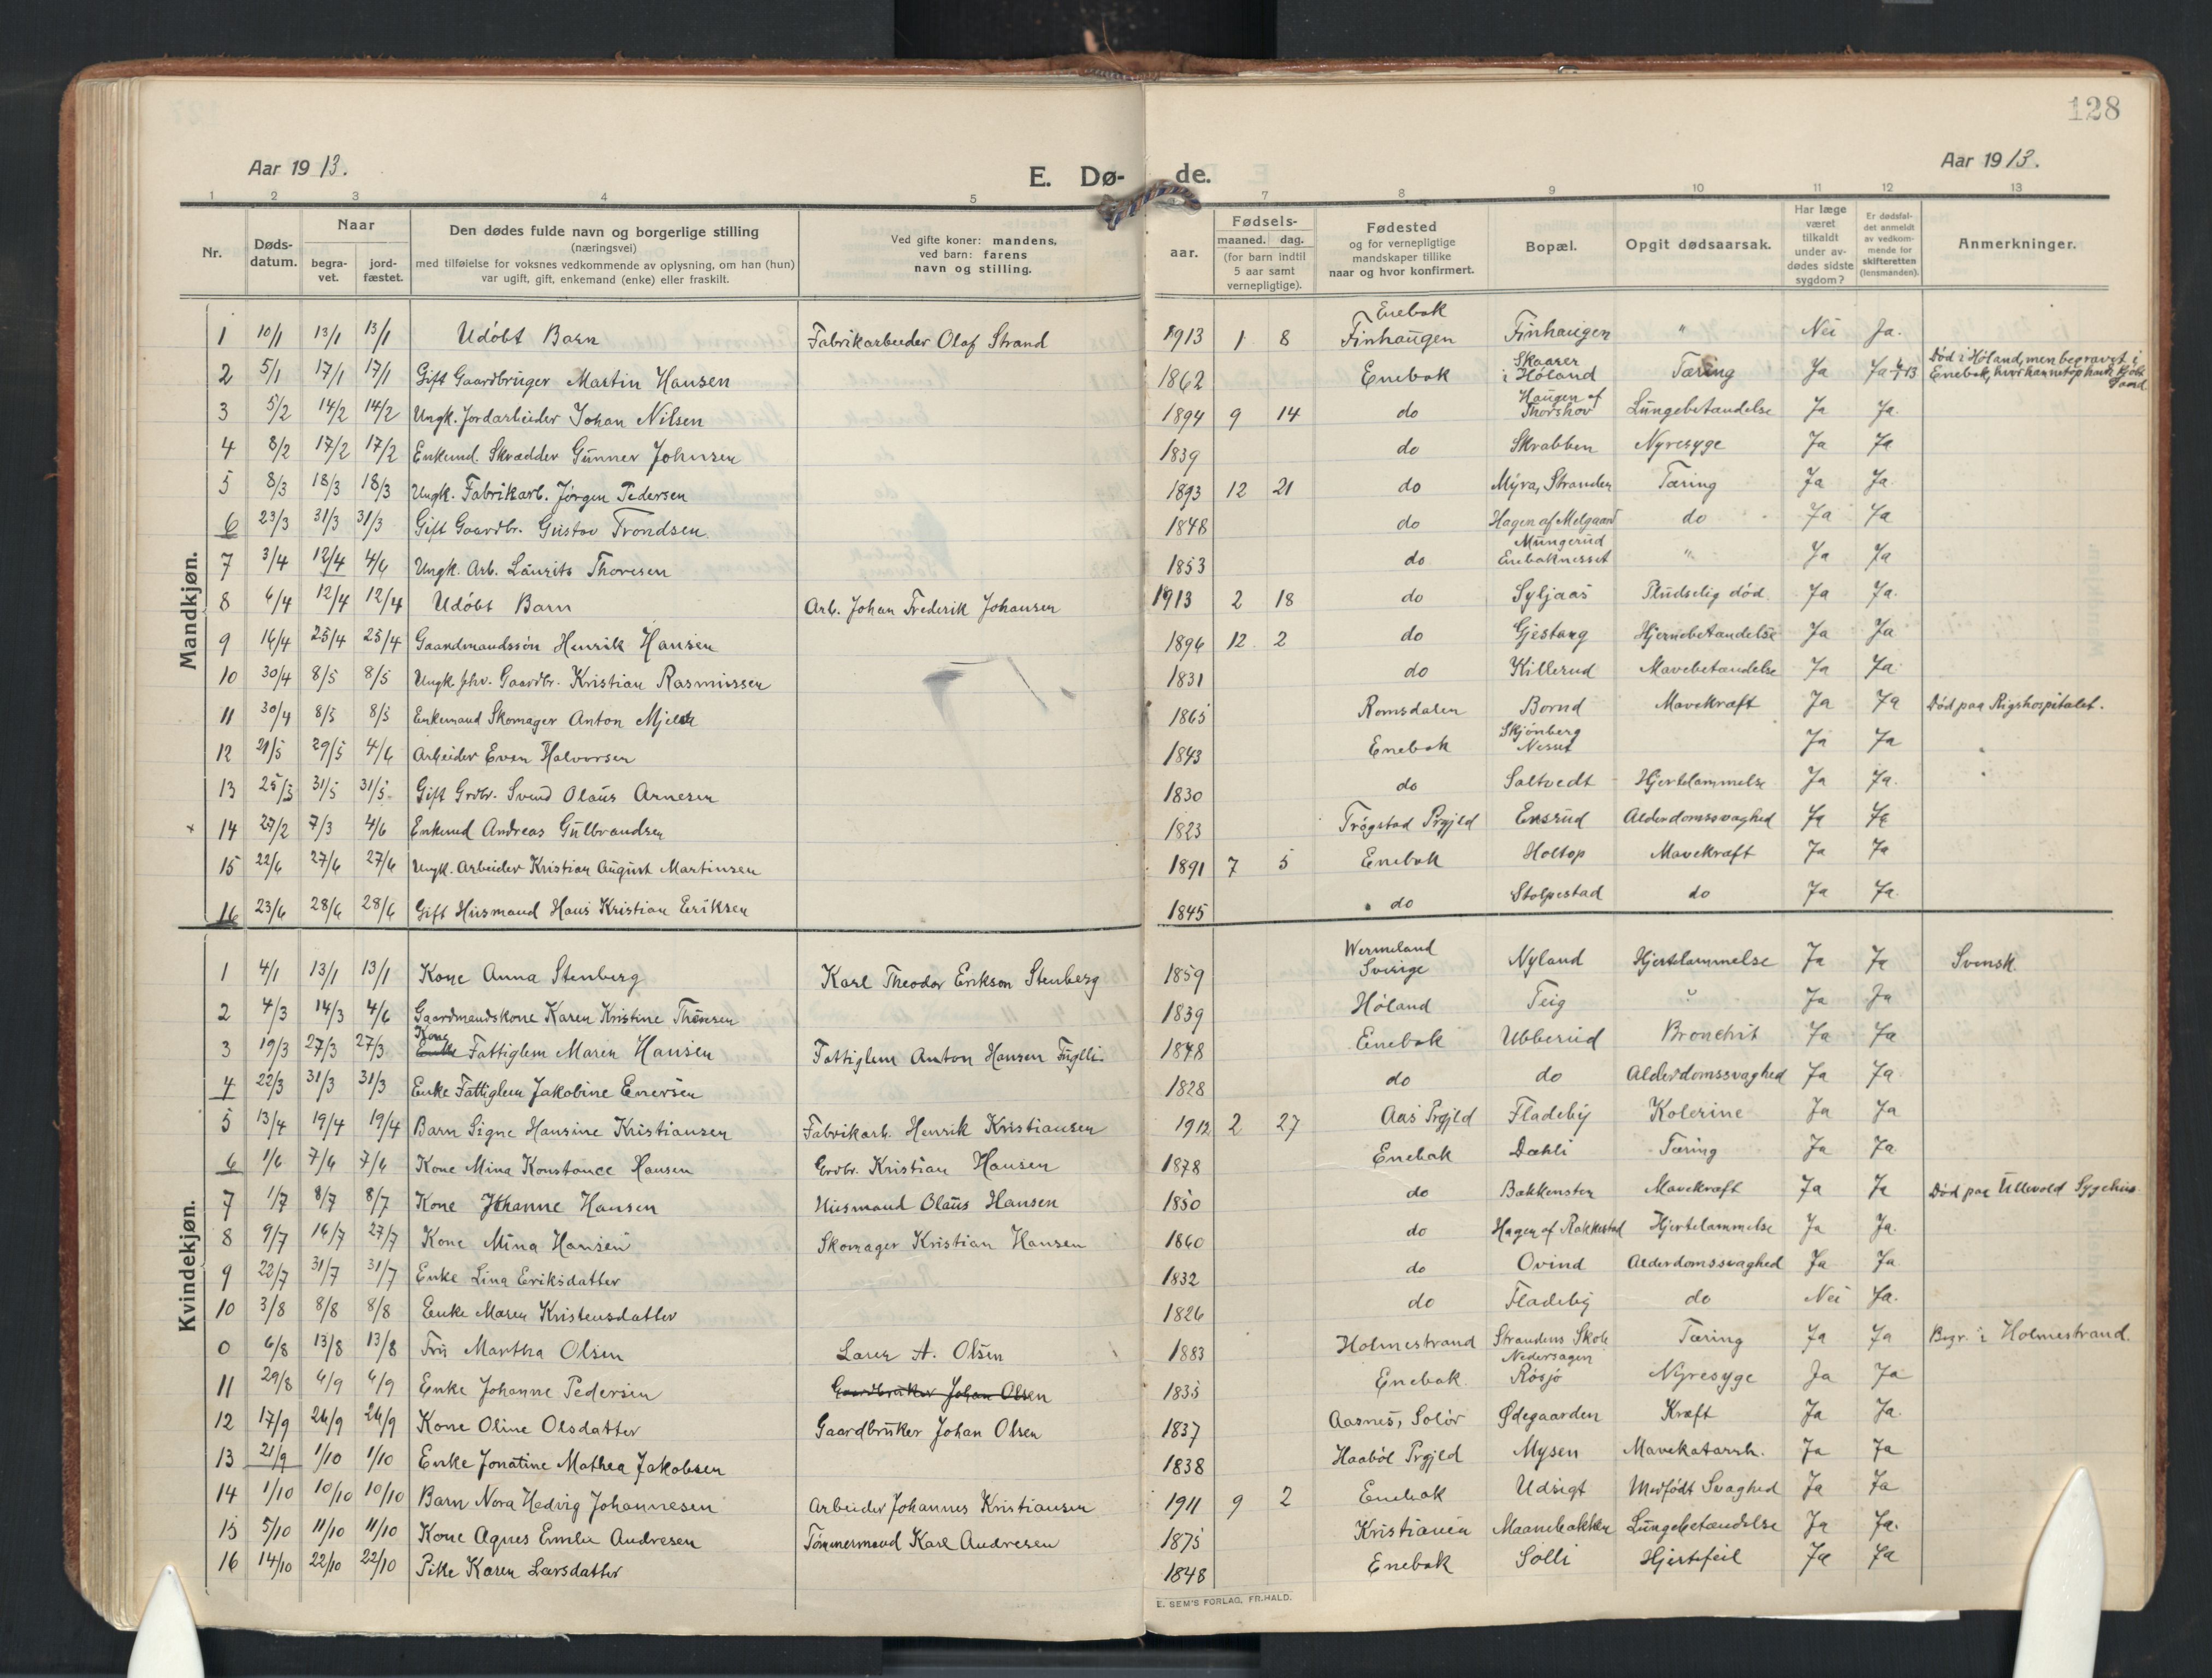 128
Aar 1913.
E. Dø- de.
Aar 1913.
1 2 3 4 5 7 8 9 10 11 12 13
Nr.
Døds-datum.
Naar
begra-vet.
jord-fæstet.
Den dødes fulde navn og borgerlige stilling
(næringsvei)
med tilføielse for voksnes vedkommende av oplysning, om han (hun)
var ugift, gift, enkemand (enke) eller fraskilt.
Ved gifte koner: mandens,
ved barn: farens
navn og stilling.
Fødsels-
aar.
maaned. dag.
(for barn indtil
5 aar samt
vernepligtige).
Fødested
og for vernepligtige
mandskaper tillike
naar og hvor konfirmert.
Bopæl.
Opgit dødsaarsak.
Har læge
været
tilkaldt
under av-
dødes sidste
sygdom?
Er dødsfal-
det anmeldt
av vedkom-
mende for
skifteretten
(lensmanden).
Anmerkninger.
Mandkjøn.
1 10/1 13/1 13/1 Udöbt Barn Fabrikarbeider Olaf Strand 1913 1 8 Enebak Finhaugen Finhaugen " Nei Ja.
2 5/1 17/1 17/1 Gift Gaardbruger Martin Hansen 1862 Enebak Skaarer i Höland Tæring Ja Ja Död i Höland, men begravet i Enebak, hvor han netop havde kjöbt Gaard
3 5/2 14/2 14/2 Ungk. Jordarbeider Johan Nilsen 1894 9 14 do Haugen af Thorshov Lungebetændelse Ja Ja.
4 8/2 17/2 17/2 Enkemd. Skrædder Gunner Johnsen 1839 do Skrabben Nyresyge Ja Ja
5 8/3 18/3 18/3 Ungk. Fabrikarb. Jørgen Pedersen 1893 12 21 do Myra, Stranden Tæring Ja Ja.
6 23/3 31/3 31/3 Gift Gaardbr. Gustav Trondsen. 1848 do Hagen af Melgaard do Ja Ja
7 3/4 12/4 4/6 Ungk. Arb. Laurits Thoresen 1853 do Mungerud Enebaknesset " Ja Ja
8 6/4 12/4 12/4 Udöbt Barn Arb. Johan Frederik Johansen 1913 2 18 do Syljaas Pludselig död. Ja Ja.
9 16/4 25/4 25/4 Gaardmandssön Henrik Hansen 1896 12 2 do Gjestang Hjernebetændelse Ja Ja
10 30/4 8/5 8/5 Ungk. fhv. Gaardbr. Kristian Rasmussen 1831 do Killerud Mavebetændelse Ja Ja
11 30/4 8/5 8/5 Enkemand Skomager Anton Mjelde 1865 Romsdalen Bornd Mavekræft Ja Ja Död paa Rigshospitalet.
12 21/5 29/5 4/6 Arbeider Even Halvorsen 1843 Enebak Skjönberg Nesset Ja Ja
13 25/5 31/5 31/5 Gift Grdbr. Svend Olaus Arnesen 1830 do Saltvedt Hjertelammelse Ja Ja.
+ 14 27/2 7/3 4/6 Enkemd Andreas Gulbrandsen 1823 Trögstad Prgjeld Ensrud Alderdomssvaghed Ja Ja
15 22/6 27/6 27/6 Ungk. Arbeider Kristian August Martinsen 1891 7 5 Enebak Holtop Mavekræft Ja Ja
16 23/6 28/6 28/6 Gift Husmand Hans Kristian Eriksen 1845 do Stolpestad do Ja Ja.
Kvindekjøn.
1 4/1 13/1 13/1 Kone Anna Stenberg Karl Theodor Erikson Stenberg 1859 Wermeland Sverige Nyland Hjertelammelse Ja Ja Svensk.
2 4/3 14/3 4/6 Gaardmandskone Karen Kristine Thoresen 1839 Höland Teig " Ja Ja
3 19/3 27/3 27/3 Kone Enke Fattiglem Maren Hansen Fattiglem Anton Hansen Fuglli 1848 Enebak Ubberud Bronchit Ja Ja
4 22/3 31/3 31/3 Enke Fattiglem Jakobine Enersen 1828 do do Alderdomssvaghed Ja Ja
5 13/4 19/4 19/4 Barn Signe Hansine Kristiansen Fabrikarb. Henrik Kristiansen 1912 2 27 Aas Prgjld Fladeby Kolerine Ja Ja
6 1/6 7/6 7/6 Kone Mina Konstance Hansen Grdbr. Kristian Hansen 1878 Enebak Dæhli Tæring Ja Ja
7 1/7 8/7 8/7 Kone Johanne Hansen Husmand Olaus Hansen 1850 do Bakkensten Mavekræft Ja Ja Död paa Ullevold Sygehus.
8 9/7 16/7 27/7 Kone Mina Hansen Skomager Kristian Hansen 1860 do Hagen af Rakkestad Hjertelammelse Ja Ja.
9 22/7 31/7 31/7 Enke Lina Eriksdatter 1832 do Ovind Alderdomssvaghed Ja Ja
10 3/8 8/8 8/8 Enke Maren Kristensdatter 1826 do Fladeby do Nei Ja.
0 6/8 13/8 13/8 Fru Martha Olsen Lærer A. Olsen 1883 Holmestrand Strandens Skole Tæring Ja Ja Begr. i Holmestrand.
11 29/8 6/9 6/9 Enke Johanne Pedersen Gaardbruker Johan Olsen 1835 Enebak Nedersagen Rösjö Nyresyge Ja Ja
12 17/9 26/9 26/9 Kone Oline Olsdatter Gaardbruker Johan Olsen 1837 Aasnes, Solör Ødegaarden Kræft Ja Ja.
13 21/9 1/10 1/10 Enke Jonatine Mathea Jakobsen 1838 Haaböl Prgjeld Mysen Mavekatarrh. Ja Ja
14 1/10 10/10 10/10 Barn Nora Hedvig Johannesen Arbeider Johannes Kristiansen 1911 9 2 Enebak Udsigt Medfödt Svaghed Ja Ja
15 5/10 11/10 11/10 Kone Agnes Emilie Andresen Tömmermand Karl Andresen 1875 Kristiania Maanebakken Lungebetændelse Ja Ja.
16 14/10 22/10 22/10 Pike Karen Larsdatter 1848 Enebak Solli Hjertefeil Ja Ja
E. SEM'S FORLAG, FR.HALD.